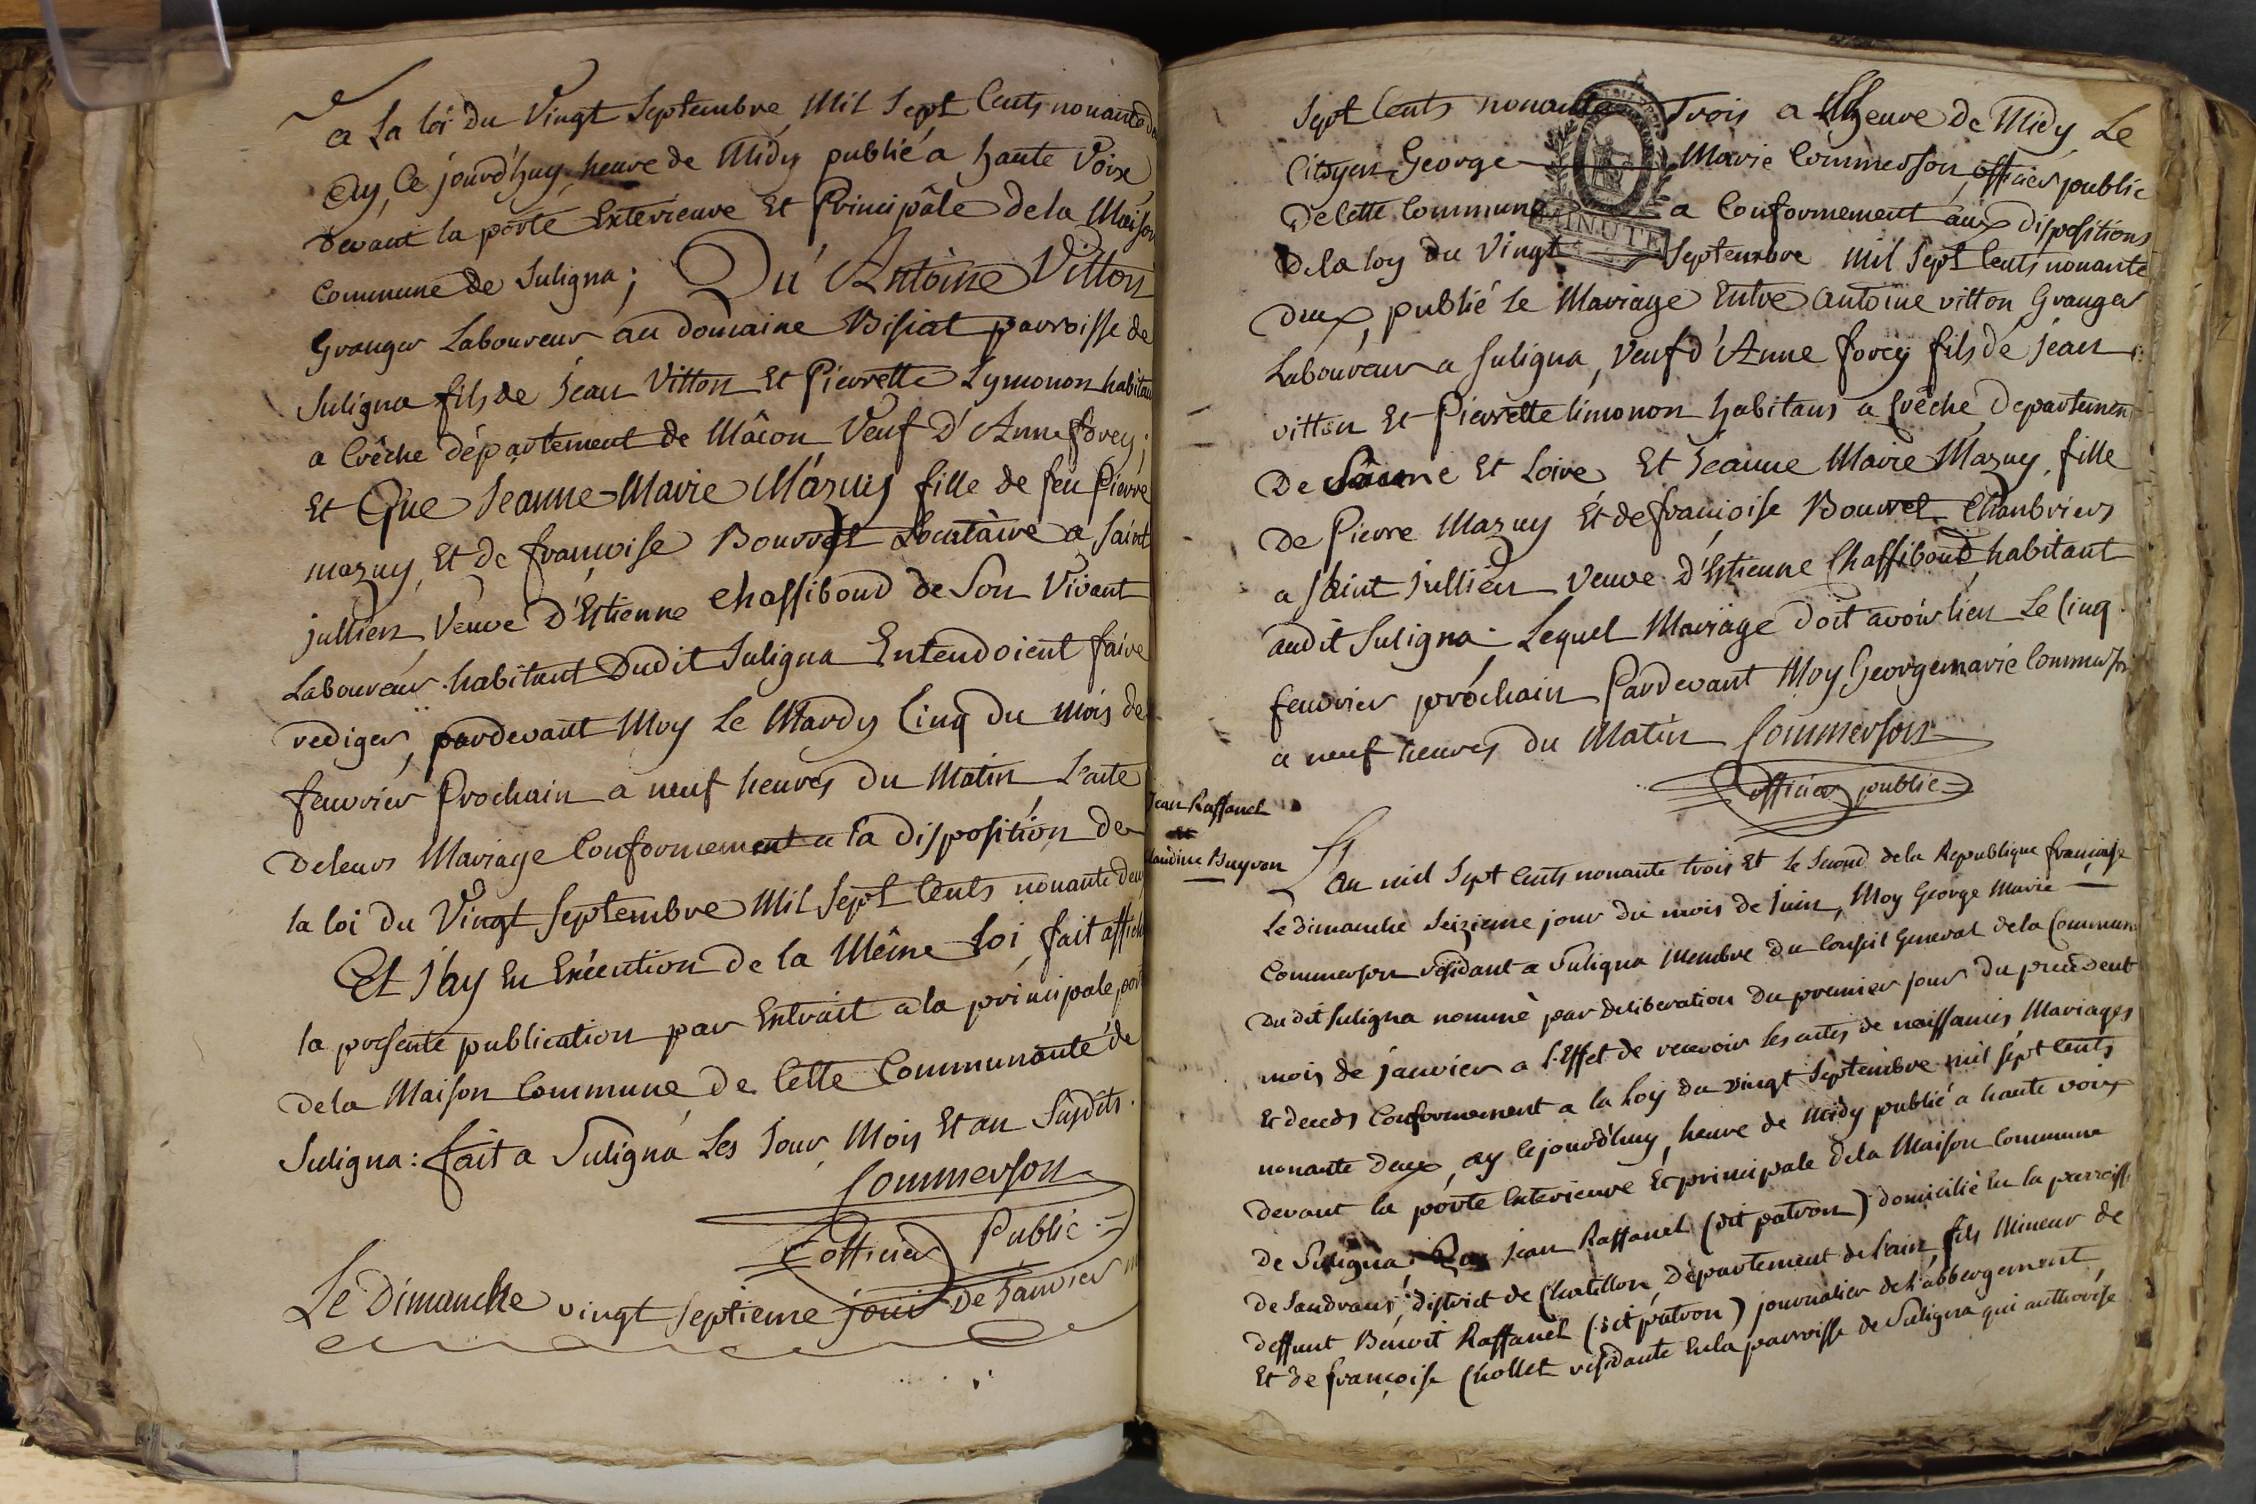 a La loi du Vingt Septembre Mil Sept Cents nonante
Ay, Ce jourd'huy, heure de Midy publié a haute Voix
devant la porte Exterieure Et Principâle de la Maison
Commune de Suligna; Qu'Antoine Vitton
Granger Laboureur au domaine Bisiat parroisse de
Suligna fils de Jean Vitton Et Pierrette Lymonon habitans
a Crêche département de Mâcon Veuf D'Anne forey;
Et Que Jeanne-Marie Mazuy fille de feu Pierre
mazuy, Et de françoise Bourrel Locatàire a Saint
jullien, Veuve D'Estienne Chassiboud de Son Vivant
Laboureur habitant Dudit Suligna Entendoient faire
rediger, pardevant Moy Le Mardy Cinq du mois de
feuvrier Prochain a neuf heures du Matin L'acte
De leurs Mariage Conformement a la disposition de
la loi du Vingt Septembre Mil Sept Cents nonante deux
Et J'ay En Exécution de la Même Loi, fait afficher
la présente publication par Extrait a la principale porte
de la Maison Commune de Cette Communauté de
Suligna: fait a Suligna Les Jour, Mois Et an Susdits.
Commerson
officier Public
Le Dimanche vingt Septieme jour De Janvier
Sept Cents nonante Trois a L'heure De Midy, Le
Citoyen George Marie Commerson, officier public
De Cette Commune a Conformement aux dispositions
De la loy du Vingt Septembre Mil Sept Cents nonante
deux, publié Le Mariage Entre Antoine vitton Granger
Laboureur a Suligna, Veuf d'Anne forey fils de Jean
vitton Et Pierrette limonon habitans a Crêche, Departement
De Saône Et Loire Et Jeanne Marie Mazuy, fille
De Pierre Mazuy Et de françoise Bourrel Chanbriers
a Saint Jullien Veuve d'Estienne Chassiboud, habitant
audit Suligna. Lequel Mariage doit avoir lieu Le Cinq
feuvrier prochain Pardevant Moy George marie Commerson
a neuf heures du Matin Commerson
officier public
MINUTE
Jean Raffanel
et
Claudine Buyron
L'an mil Sept Cents nonante trois Et le Second de la Republique française
Le dimanche Seizieme jour du mois de Juin, Moy George Marie
Commerson residant a Suligna Membre du Conseil General de la Commune
Du dit Suligna nommé par deliberation du premier jour du precedent
mois de janvier a l'Effet de recevoir les actes de naissances Mariages
Et deceds Conformement a la loy du vingt Septembre mil Sept Cents
nonante deux, ay Cejourd'huy, heure de Midy publié a haute voix
devant la porte Exterieure Et principale de la Maison Commune
de Suligna; Que Jean Raffanel (dit patron) domicilié En la parroisse
de Sandrans, district de Chatillon, Département de l'ain, fils Mineur de
deffunt Benoit Raffanel (dit patron) journalier de l'abbergement,
Et de françoise Chollet residante En la parroisse de Suligna qui authorise